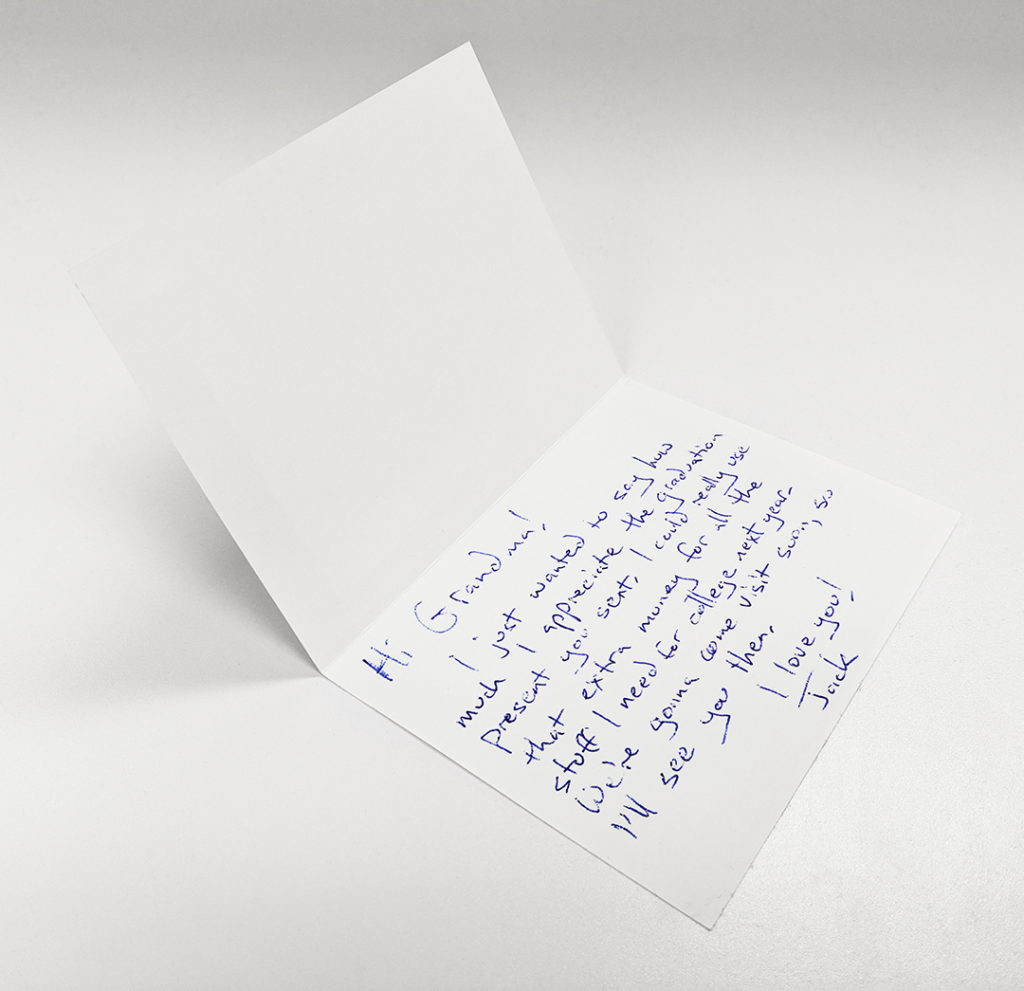 Hi Grandma!
I just wanted to say how
much I appreciate the graduation
present you sent. I could really use
that extra money for all the
stuff I need for college next year.
We're gonna come visit soon, so
I'll see you then.
I love you!
Jack